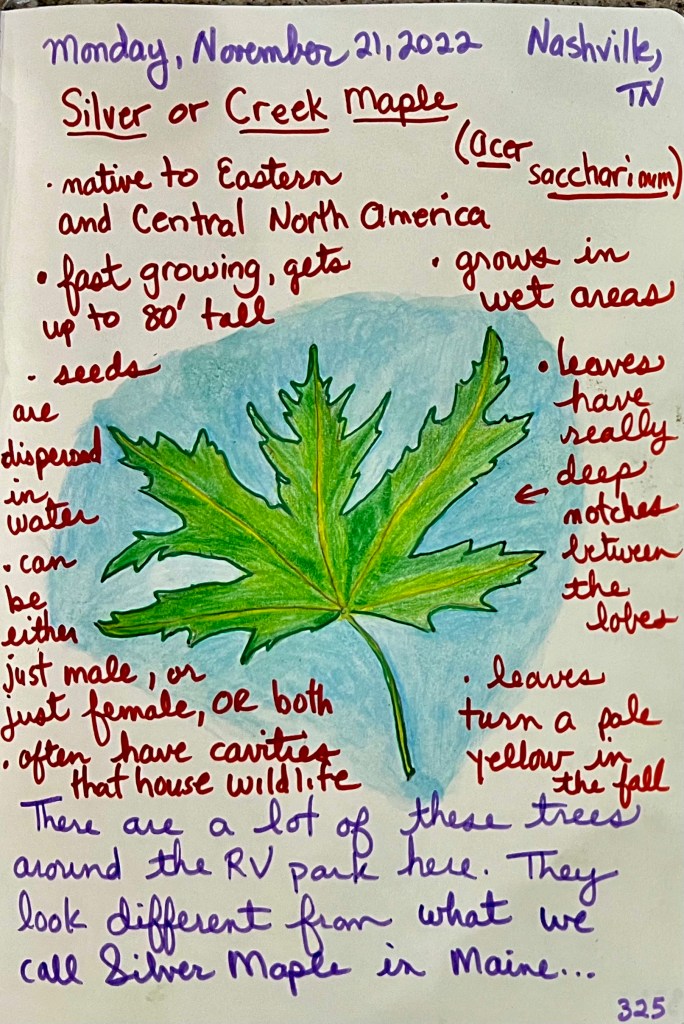 Monday, November 21, 2022 Nashville,
TN
Silver or Creek Maple
(acer
saccharioum)
· native to Eastern
and Central North America
· fast growing, gets
up to 80' tall
· grows in
wet areas
· seeds
are
dispersed
in
water
· can
be
either
just male, or
just female, OR both
· often have cavities
that house wildlife
· leaves
have
really
deep
← notches
between
the
lobes
· leaves
turn a pale
yellow in
the fall
There are a lot of these trees
around the RV park here. They
look different from what we
call Silver Maple in Maine...
325